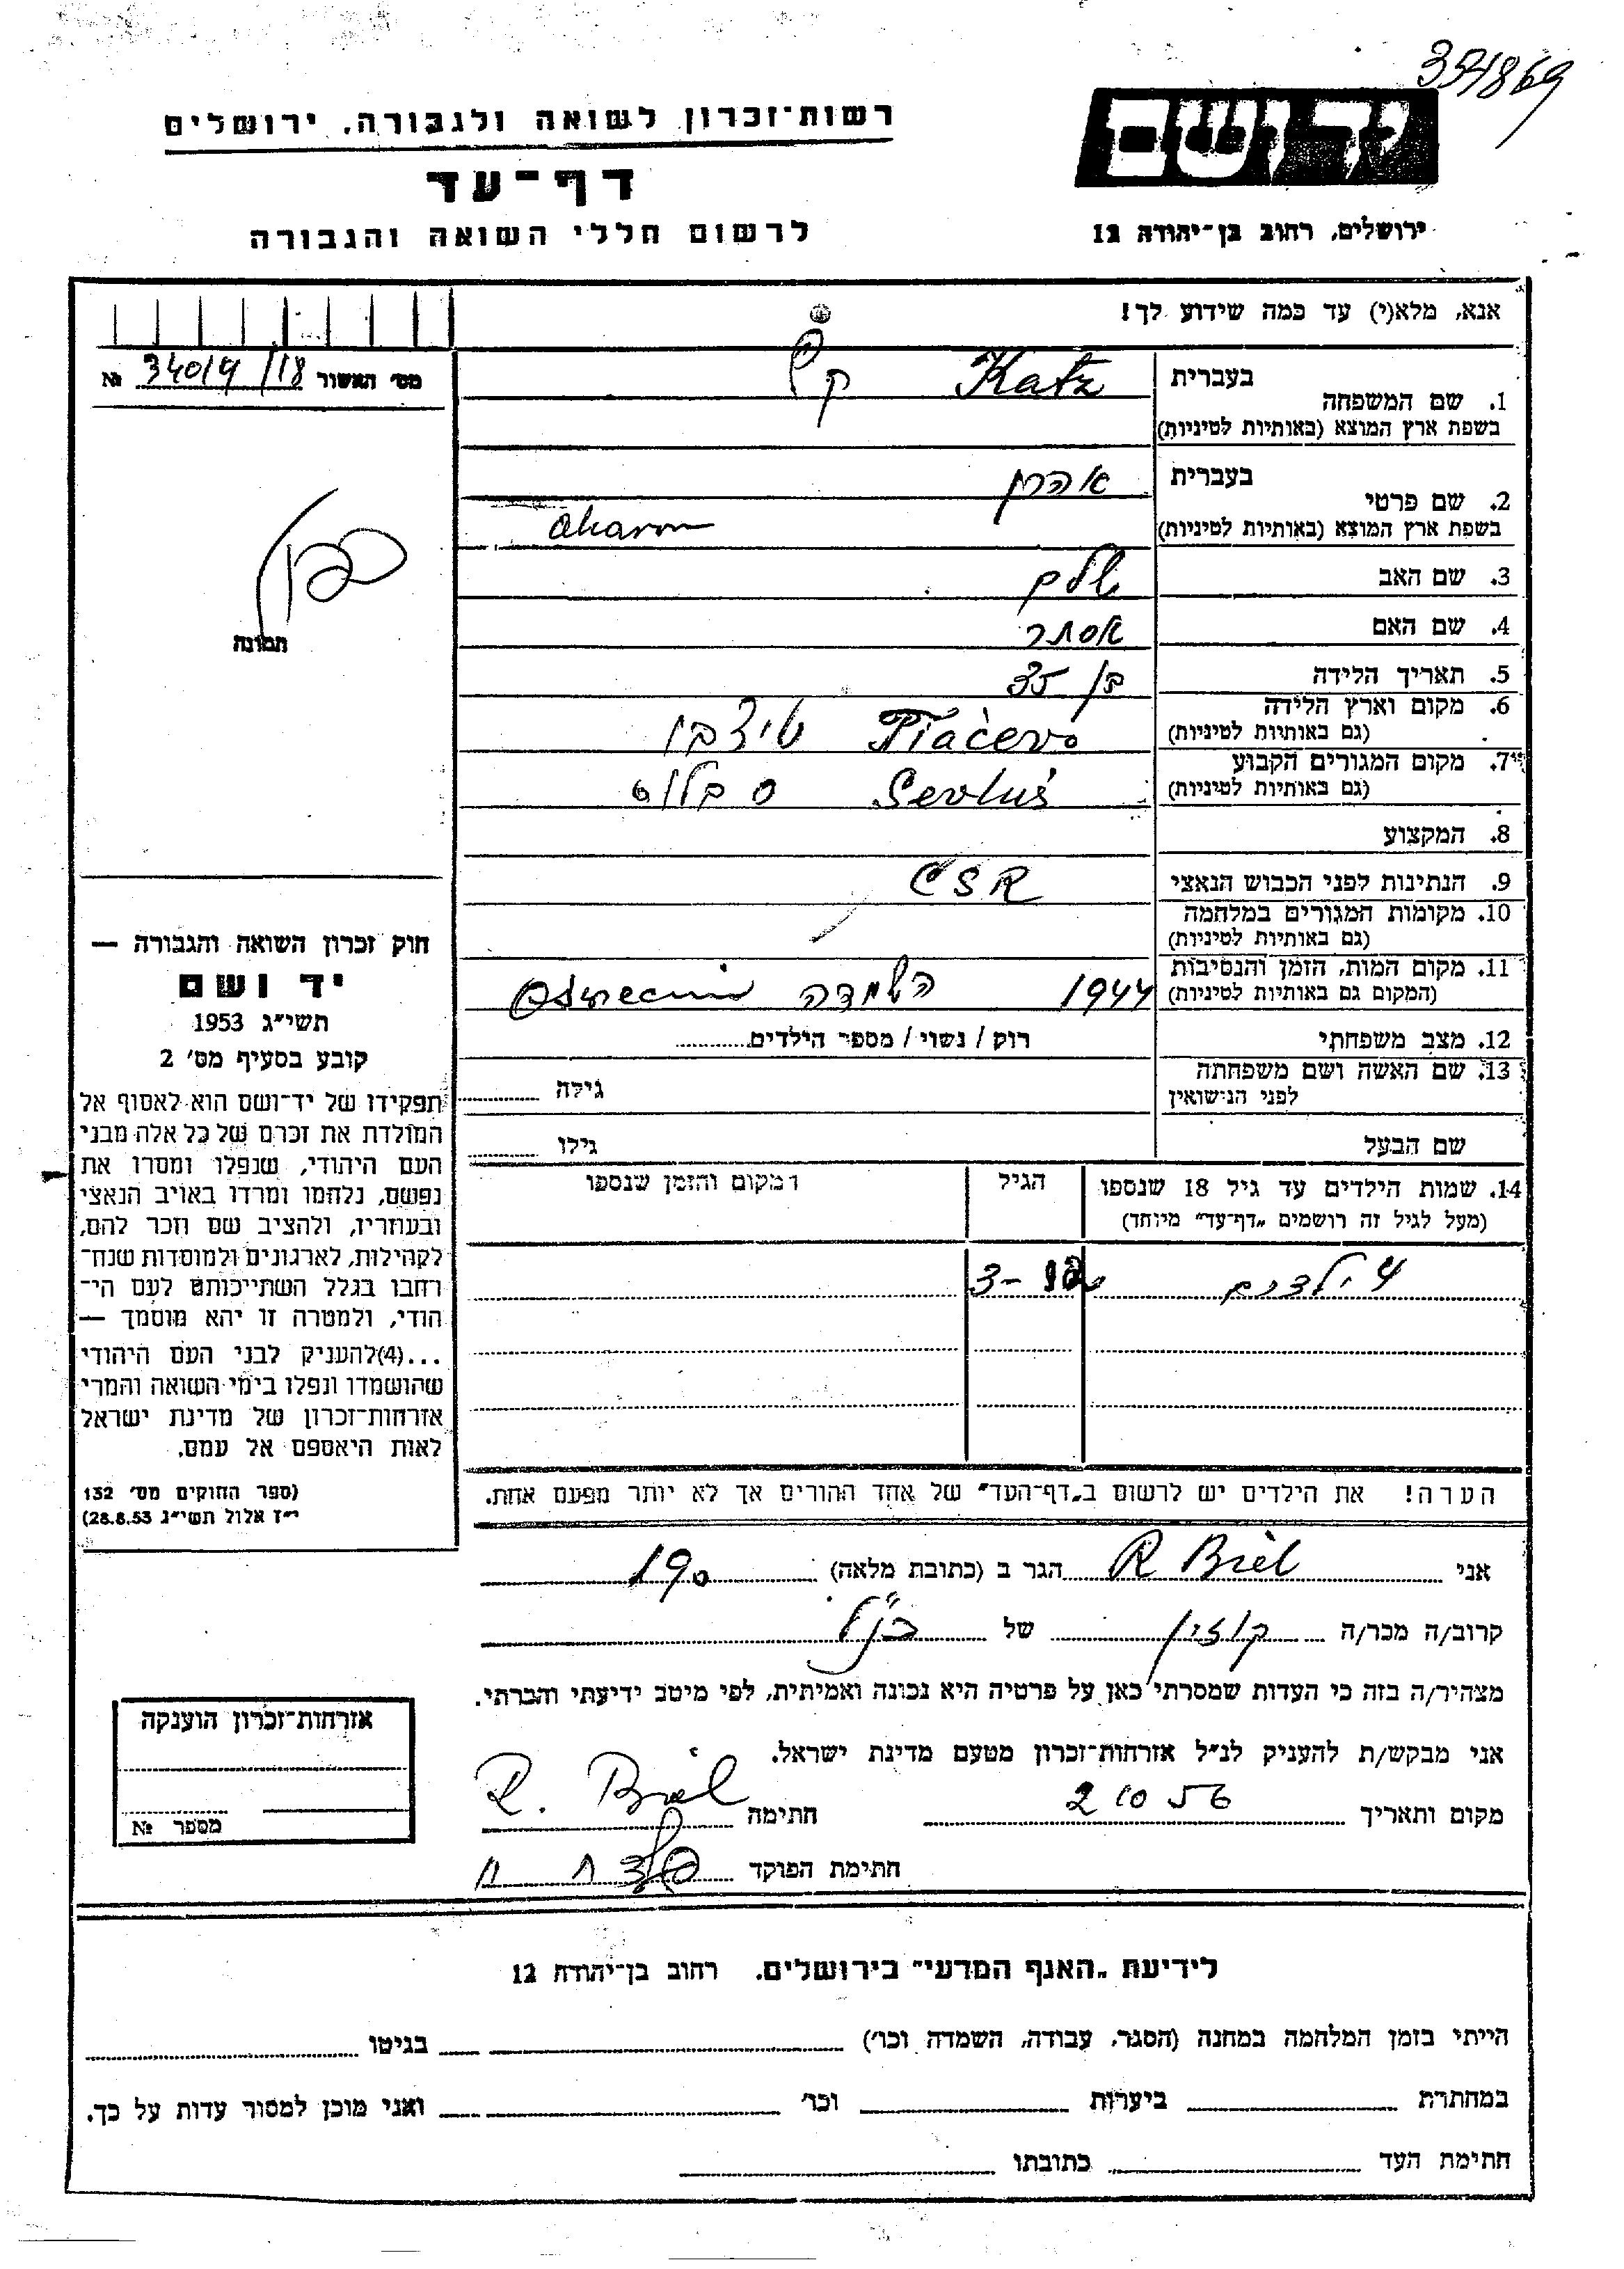 334869
רשות־זכרון לשואה ולגבורה, ירושלים
דף־עד
לרשום חללי השואה והגבורה
יד ושם
ירושלים, רחוב בן־יהודה 12
אנא, מלא(י) עד כמה שידוע לך!
מס׳ האשור 34014/18 №
תמונה
1. שם המשפחה בעברית Katz קץ
בשפת ארץ המוצא (באותיות לטיניות)
2. שם פרטי בעברית אהרן
בשפת ארץ המוצא (באותיות לטיניות) Aharon
3. שם האב שלם
4. שם האם אסתר
5. תאריך הלידה בן 35
6. מקום וארץ הלידה
(גם באותיות לטיניות) Tiačevo טיצבו
7. מקום המגורים הקבוע
(גם באותיות לטיניות) Sevluš סבלוש
8. המקצוע
9. הנתינות לפני הכבוש הנאצי ČSR
10. מקומות המגורים במלחמה
(גם באותיות לטיניות)
11. מקום המות, הזמן והנסיבות
(המקום גם באותיות לטיניות) 1944 השמדה
12. מצב משפחתי רוק / נשוי / מספר הילדים
13. שם האשה ושם משפחתה
לפני הנישואין גילה
שם הבעל גילו
14. שמות הילדים עד גיל 18 שנספו הגיל המקום והזמן שנספו
(מעל לגיל זה רושמים „דף־עד״ מיוחד)
4 ילדים 3-12
הערה! את הילדים יש לרשום ב„דף־העד״ של אחד ההורים אך לא יותר מפעם אחת.
חוק זכרון השואה והגבורה —
יד ושם
תשי״ג 1953
קובע בסעיף מס׳ 2
תפקידו של יד־ושם הוא לאסוף אל
המולדת את זכרם של כל אלה מבני
העם היהודי, שנפלו ומסרו את
נפשם, נלחמו ומרדו באויב הנאצי
ובעוזריו, ולהציב שם וזכר להם,
לקהילות, לארגונים ולמוסדות שנח־
רחבו בגלל השתייכותם לעם הי־
הודי, ולמטרה זו יהא מוסמך —
...(4)להעניק לבני העם היהודי
שהושמדו ונפלו בימי השואה והמרי
אזרחות־זכרון של מדינת ישראל
לאות היאספם אל עמם.
(ספר החוקים מס׳ 132
י״ז אלול תשי״ג 28.8.53)
אני R Biel הגר ב (כתובת מלאה)
קרוב/ה מכר/ה קוזין של הנ״ל
מצהיר/ה בזה כי העדות שמסרתי כאן על פרטיה היא נכונה ואמיתית, לפי מיטב ידיעתי והכרתי.
אני מבקש/ת להעניק לנ״ל אזרחות־זכרון מטעם מדינת ישראל.
מקום ותאריך 2 10 56 חתימה R. Biel
חתימת הפוקד
אזרחות־זכרון הוענקה
מספר №
לידיעת „האגף המדעי״ בירושלים. רחוב בן־יהודה 12
הייתי בזמן המלחמה במחנה (הסגר, עבודה, השמדה וכו׳) בגיטו
במחתרת ביערות וכו׳ ואני מוכן למסור עדות על כך.
חתימת העד כתובתו